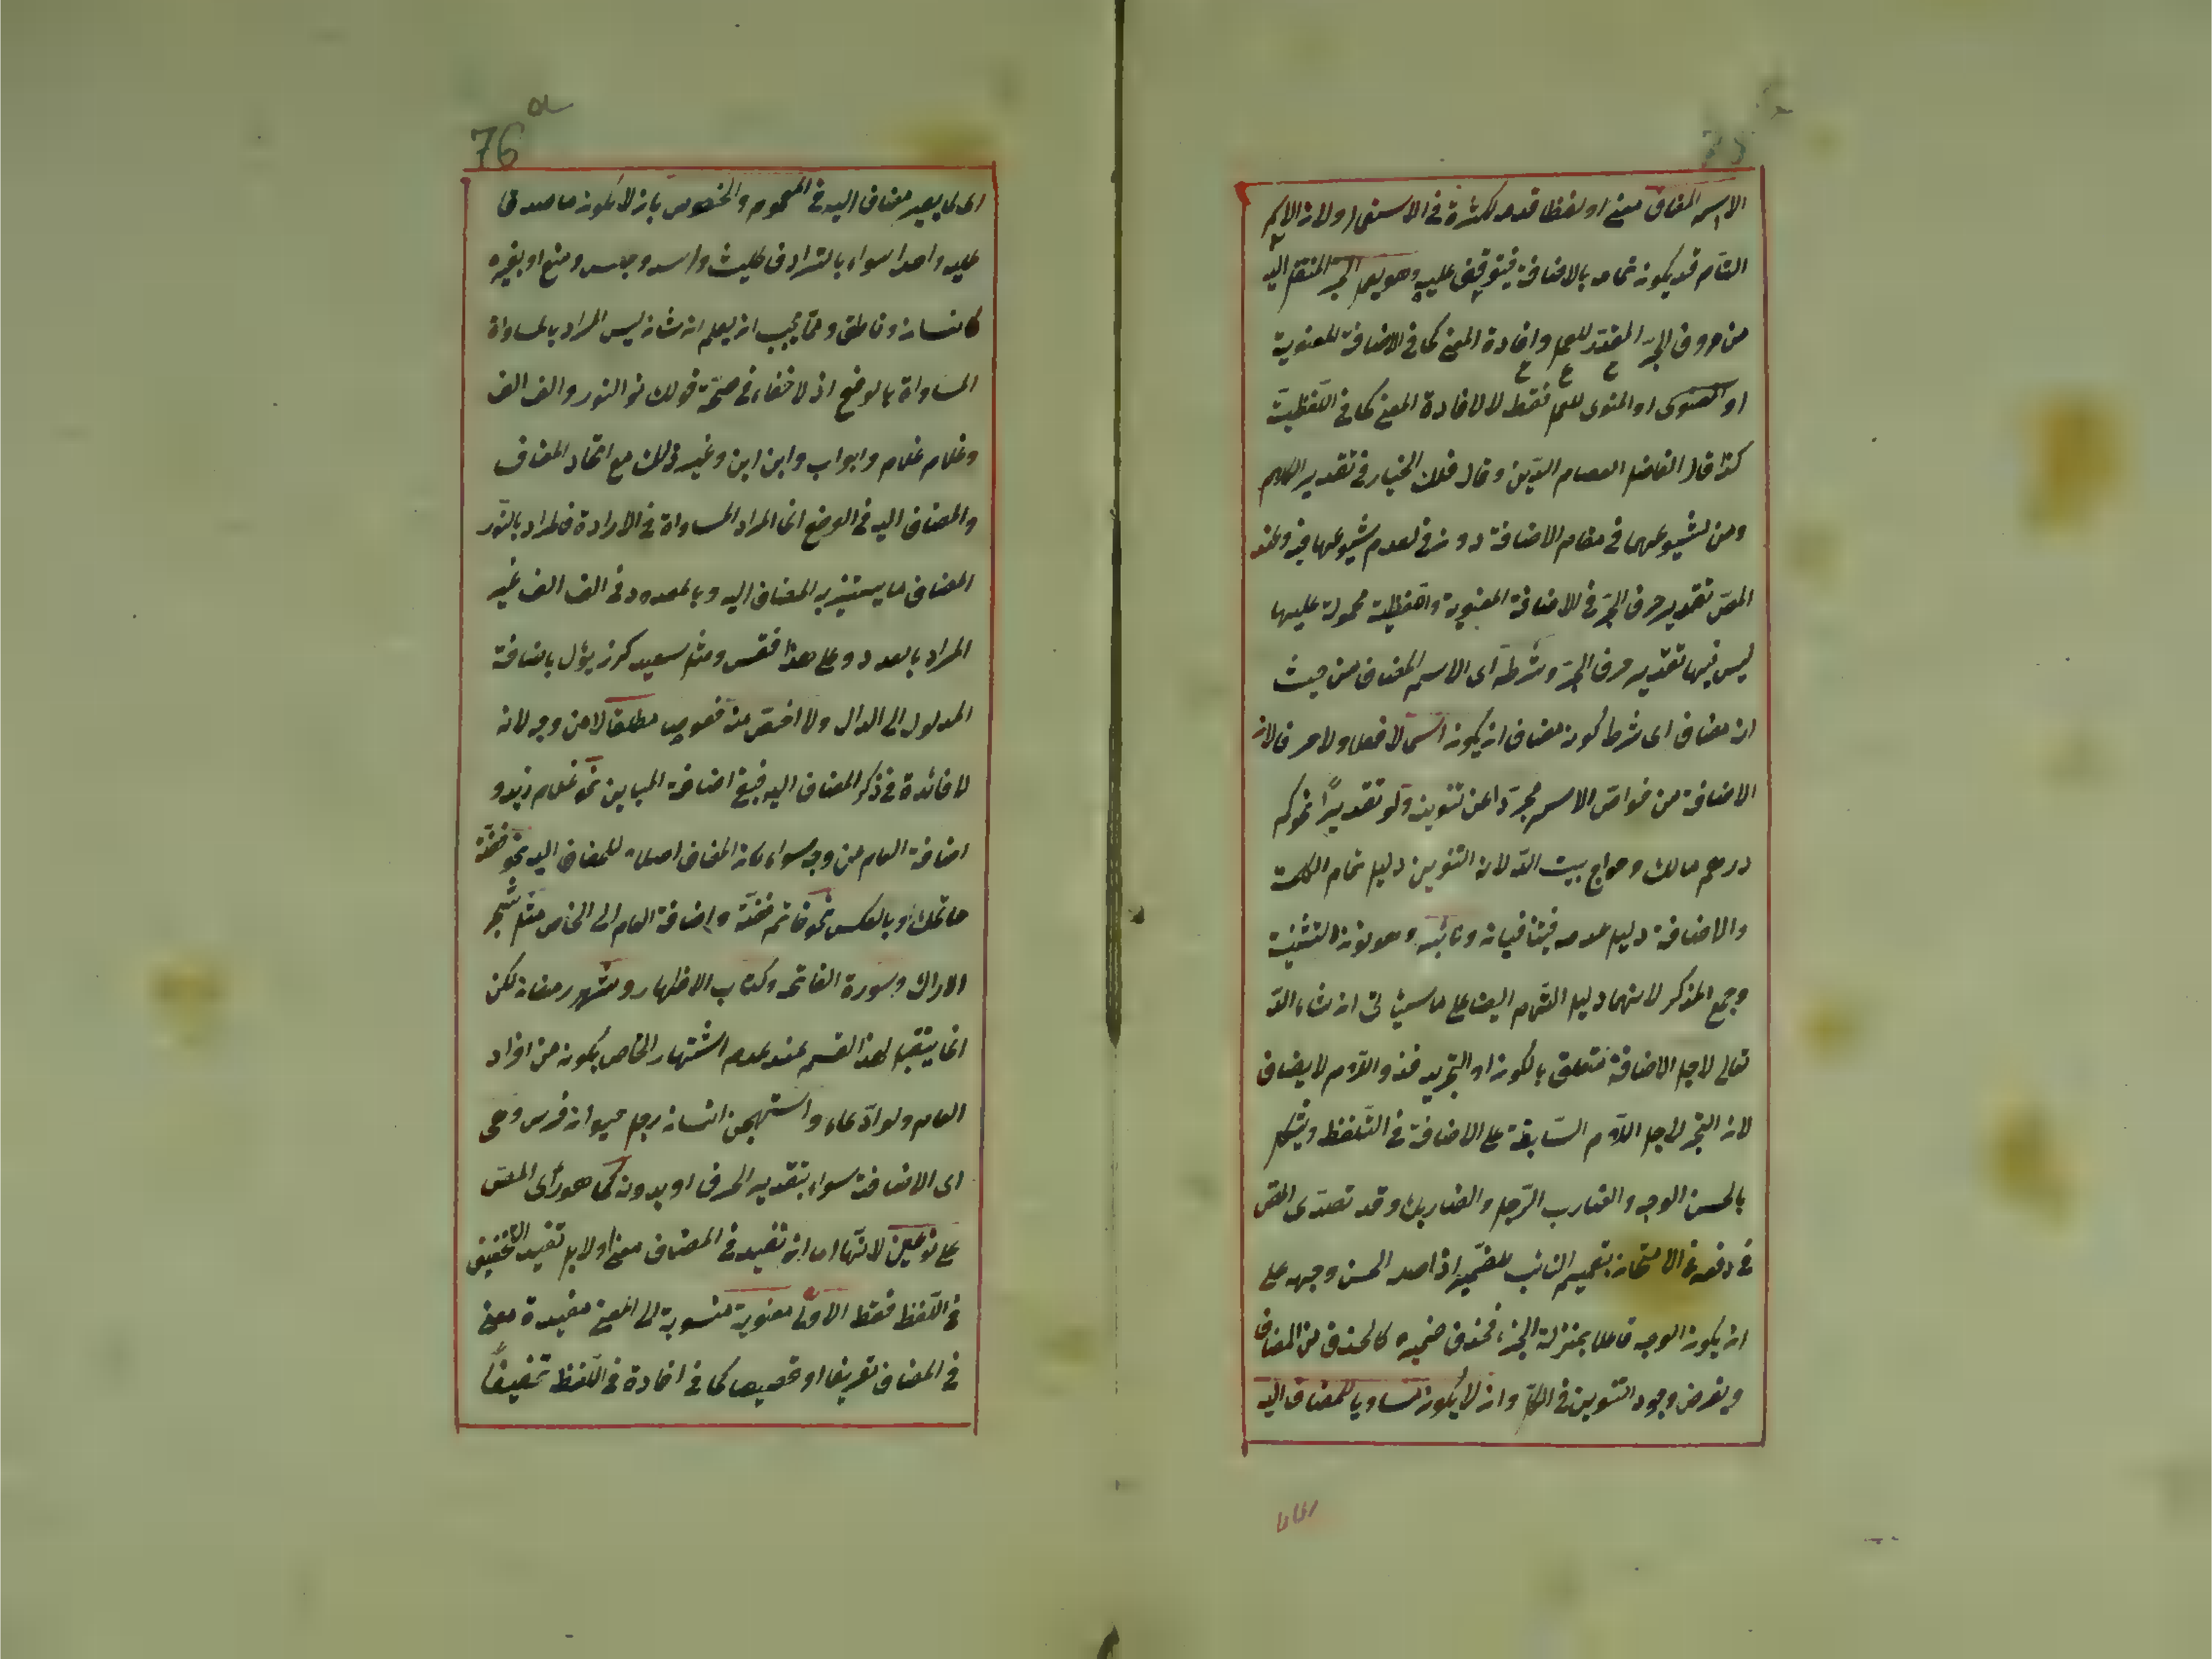 الاسم المضاف معنى او لفظا قدمه لكثرته فى الاستعمال ولان الاسم
التام قد يكون تمامه بالاضافة فيتوقف عليه وهو يعمل الجر المنقل اليه
من حروف الجر المقدر للعمل وافادة المعنى كما فى الاضافة المعنوية
او المنوى للعمل فقط لا لافادة المعنى كما فى اللفظية
كذا قال الفاضل العصام الدين وقال فلك الخيار فى تقدير اللام
ومن لشيوعهما فى مقام الاضافة دون فى لعدم شيوعها فيه وعند
المص تقدير حرف الجر فى الاضافة المعنوية واللفظية محمولة عليها
ليس فيها تقدير حرف الجر وشرطه اى الاسم المضاف من حيث
انه مضاف اى شرط كونه مضافا ان يكون اسما لا فعلا ولا حرفا لان
الاضافة من خواص الاسم مجردا عن تنوين ولو تقديرًا نحو كم
درهم مالك وحواج بيت الله لان التنوين دليل تمام الكلمة
والاضافة دليل عدمه فيتنافيان ونائبه وهو نون التثنية
وجمع المذكر لانهما دليل التمام ايضا على ما سيأتى ان شاء الله
تعالى لاجل الاضافة متعلق بالكون او التجريد فذو اللام لا يضاف
لان التجرد لاجل اللام السابقة على الاضافة فى التلفظ ويشكل
بالحسن الوجه والضارب الرجل والضاربك وقد تصدى المص
فى دفعه فى الامتحان بتعميم النائب للضمير اذ اصل الحسن وجهه على
ان يكون الوجه فاعلا بمنزلة الجزء فحذف ضميره كالحذف من المضاف
وبفرض وجود التنوين فى الكل وان لا يكون مساويا للمضاف اليه
76
اى لا يصير مضاف اليه فى العموم والخصوص بان لا يكون ما صدقا
عليه واحدا سواء بالترادف كليث واسد وحبس ومنع او بغيره
كانسان وناطق ومما يجب ان يعلم ان شانه ليس المراد بالمساواة
المساواة بالوضع اذ لا خفاء فى صحة قولك نور النور والف الف
وغلام غلام وابواب وابن ابن وغير ذلك مع اتحاد المضاف
والمضاف اليه فى الوضع انما المراد المساواة فى الارادة فالمراد بالنور
المضاف ما يستنير به المضاف اليه وبالمعدود فى الف الف غير
المراد بالعدد وعلى هذا فقس ومثل سعيد كرز يؤل باضافة
المدلول الى الدال ولا اخص منه مطلقا لا من وجه لانه
لا فائدة فى ذكر المضاف اليه فبقى اضافة المباين نحو غلام زيد و
اضافة العام من وجه سواء كان المضاف اصلا للمضاف اليه نحو فضة
خاتمك او بالعكس نحو خاتم فضة واضافة العام الى الخاص مثل شجر
الاراك وسورة الفاتحة وكتاب الاظهار وشهر رمضان لكن
انما يقبل هذا القسم عند عدم اشتهار الخاص بكونه من افراد
العام ولو ادعاء واستهجن انسان رجل حيوان فرس وهى
اى الاضافة سواء بتقدير الحرف او بدونه كما هو رأى المص
على نوعين لانها اما ان تفيد فى المضاف معنى او لا بل تفيد التخفيف
فى اللفظ فقط الاولى معنوية منسوبة الى المعنى مفيدة معنى
فى المضاف تعريفا او تخصيصا كما فى افادة فى اللفظ تخفيفًا